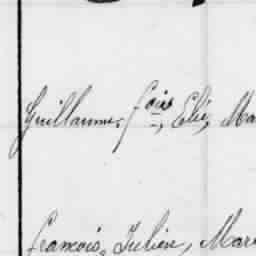 Guillaume, fois, Elie, Ma
François, Julien, Mari